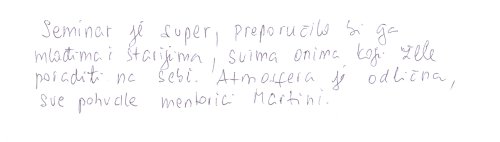 Seminar je super, preporučila bi ga
mlađima i starijima, svima onima koji žele
poraditi na sebi. Atmosfera je odlična,
sve pohvale mentorici Martini.